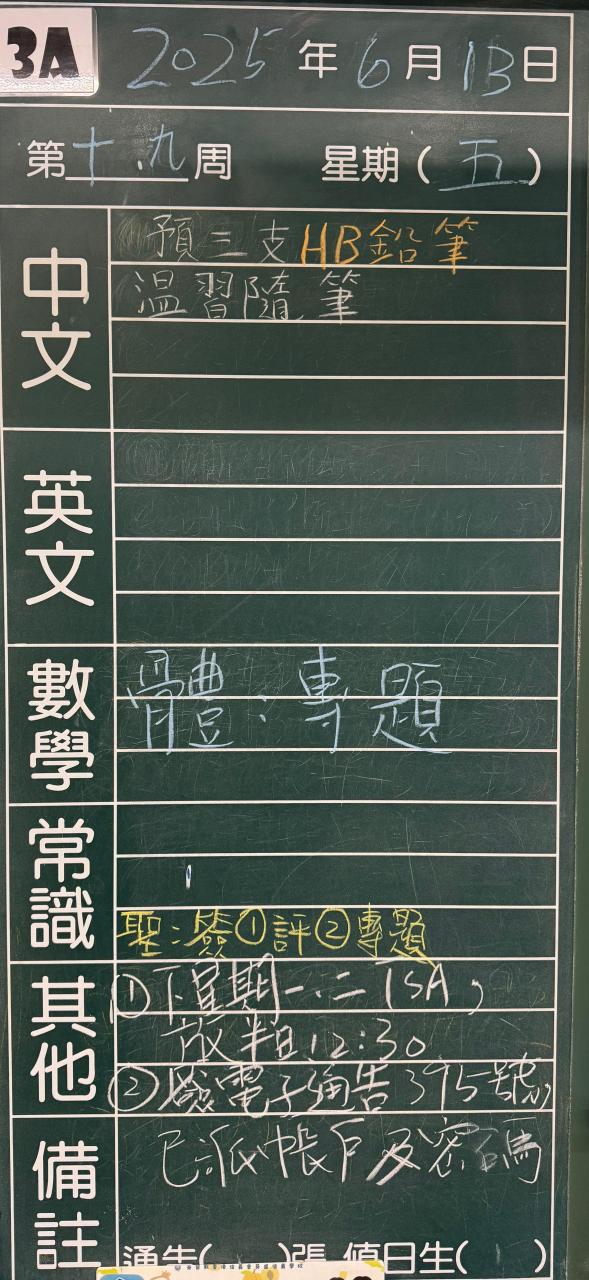 3A 2025年6月13日
第十九周 星期(五)
中文
預三支HB鉛筆
溫習隨筆
英文
數學
體:專題
常識
聖:簽①評②專題
其他
①下星期一、二TSA,
放半日12:30
②簽電子通告395號,
備註
已派帳戶及密碼
通告( )張 值日生( )